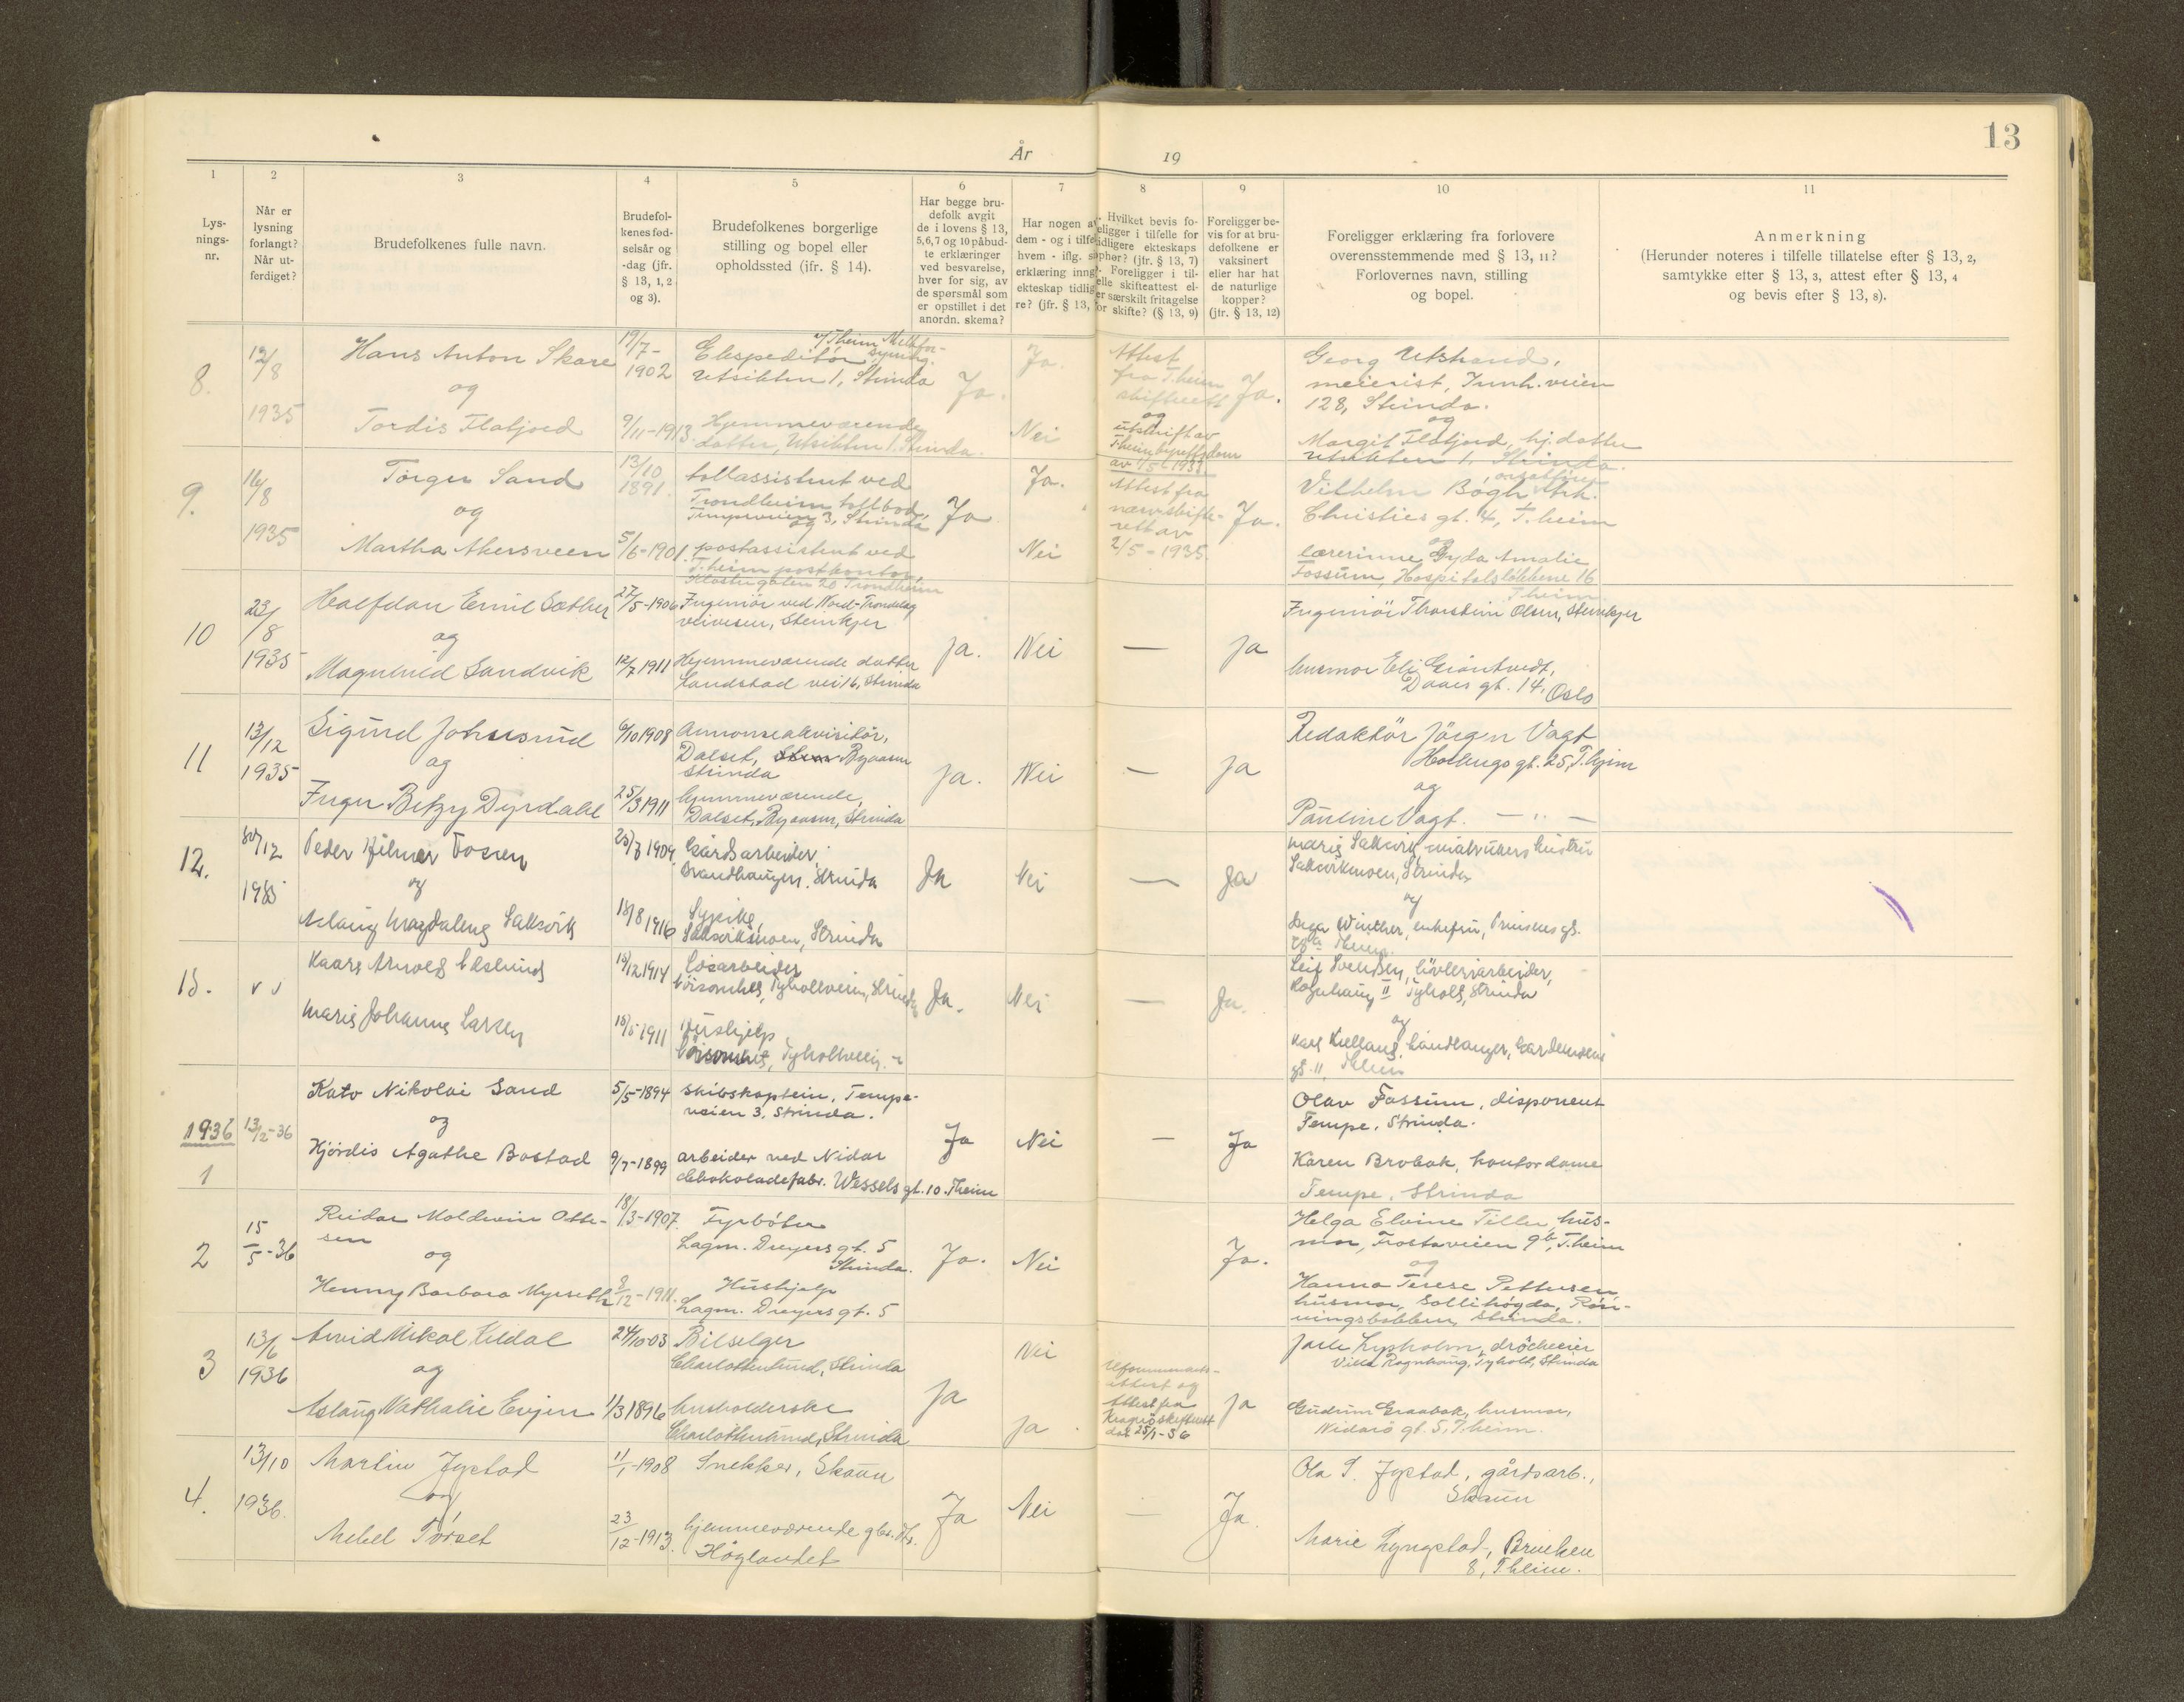 13
År 19
1 2 3 4 5 6 7 8 9 10 11
Lys-
nings-
nr.
Når er
lysning
forlangt?
Når ut-
ferdiget?
Brudefolkenes fulle navn.
Brudefol-
kenes fød-
selsår og
-dag (jfr.
§ 13, 1, 2
og 3).
Brudefolkenes borgerlige
stilling og bopel eller
opholdssted (jfr. § 14).
Har begge bru-
defolk avgit
de i lovens § 13,
5,6,7 og 10 påbud-
te erklæringer
ved besvarelse,
hver for sig, av
de spørsmål som
er opstillet i det
anordn. skema?
Har nogen av
dem - og i tilfelle
hvem - iflg. s
erklæring inng
ekteskap tidlig
re? (jfr. § 13,
Hvilket bevis fo-
eligger i tilfelle for
idligere ekteskaps
ophør? (jfr. § 13, 7)
Foreligger i til-
elle skifteattest el-
er særskilt fritagelse
for skifte? (§ 13, 9)
Foreligger be-
vis for at bru-
defolkene er
vaksinert
eller har hat
de naturlige
kopper?
(jfr. § 13, 12)
Foreligger erklæring fra forlovere
overensstemmende med § 13, 11?
Forlovernes navn, stilling
og bopel.
Anmerkning
(Herunder noteres i tilfelle tillatelse efter § 13, 2,
samtykke efter § 13, 3, attest efter § 13, 4
og bevis efter § 13, 8).
8.
12/8
1935
Hans Anton Skare
og
Tordis Flatjord
19/7-
1902
9/11-1913.
v/T.heim Melkfor-
syning.
Ekspeditør
Utsikten 1, Strinda
Hjemmeværende
datter, Utsikten 1. Strinda.
Ja.
Ja.
Nei
Attest
fra T.heim
skifterett
og
utskrift av
av 1/5 1933
Ja.
Georg
meierist, Innh.veien
128, Strinda.
og
Margit Flatjord, hj.datter
Utsikten 1. Strinda.
9.
16/8
1935
Torger Sand
og
Martha Akersveen
13/10
1891
5/6-1901.
tollassistent ved
Trondheim tollbod,
Tempeveien 3, Strinda
og
postassistent ved
T.heim postkontor,
Klostergaten 20 Trondheim
Ja
Ja.
Nei
Attest fra
nærv.skifte-
rett av
2/5-1935.
Ja.
Vilhelm Bøgh
Christies gt. 4, T.heim
og
lærerinne Gyda Amalie
Fossum, Hospitalsløkkene 16
T.heim.
10
23/8
1935
Halfdan Emil Sæther
og
Magnhild Sandvik
27/5-1906
12/7 1911
Ingeniør ved Nord-Trøndelag
veivesen, Steinkjer
Hjemmeværende datter
Landstad vei 16, Strinda
Ja.
Nei
—
Ja
Ingeniør Thorstein Olsen, Steinkjer
husmor Eli Gröntvedt,
Daaes gt. 14, Oslo
11
13/12
1935
Sigurd Johnsrud
og
Inger Betzy Dyrdahl
6/10 1908
25/3 1911
Annonseakvisitör,
Dalset, Byaasen
Strinda
hjemmeværende,
Dalset, Byaasen, Strinda
Ja.
Nei
—
Ja
Redaktör Jörgen Vagt
gt. 25, T.hjem
og
Pauline Vagt. — " —
12.
30/12
1935
Peder Hilmer
og
Aslaug Magdalena Saksvik
1904
18/8 1916
Gårdsarbeider,
Strinda
Sypike,
Saksviksmoen, Strinda
Ja
Nei
—
Ja
Marie Saksvik hustru
Saksvikmoen, Strinda
og
Winther, enkefru, Prinsens gt.
13.
Kaare Arnold
Marie Johanne Larsen
10/12 1914
1911
Løsarbeider
Tyholtveien, Strinda
Hushjelp
Tyholtveien
Ja.
Nei
—
Ja.
Leif Svendsen,
Ragnhaug II Tyholt, Strinda
og
gt. 11,
1936
1
13/2-36
Kato Nikolai Sand
og
Hjördis Agathe Bostad
5/5-1894
9/7-1899
skibskaptein, Tempe-
veien 3. Strinda.
arbeider ved Nidar
chokoladefabr. Wessels gt. 10. T.heim
Ja
Nei
—
Ja
Olav Fossum, disponent
Tempe. Strinda.
Karen Brobak, kontordame
Tempe. Strinda
2
15/5-36
Reidar Moldevin Otte-
sen
og
Henny Barbara Myrseth
18/3-1907.
9/12-1911.
Fyrbøter
Lagm. Dreyers gt. 5
Strinda.
Hushjelp
Lagm. Dreyers gt. 5
Ja.
Nei
Ja.
Helga Elvine Tiller, hus-
mor, Frostaveien 9b, T.heim
og
Hanna Terese Pettersen
husmor, Sollihøgda, Røn-
ningsbakken Strinda.
3
13/6
1936
Arvid Mikal Kildal
og
Aslaug Nathalie Evjen
24/10-03
11/3 1896
Bilselger
Charlottenlund, Strinda
husholderske
Charlottenlund, Strinda
Ja
Nei
Ja
attest og
Attest fra
Kragerö skifterett
dat 25/1-36
Ja
Jarle Lypholm, dröscheeier
Villa Ragnhaug, Tyholt, Strinda
Gudrun Graabak, husmor,
Nidarö gt. 5, T.heim.
4.
13/10
1936.
Martin Jystad
og
Melel Tørset
11/1-1908
23/12-1913.
Snekker, Skaun
hjemmeværende
Høylandet
Ja
Nei
—
Ja.
Ola P. Jystad, gårdsarb.,
Skaun
Marie Lyngstad,
8, T.heim.